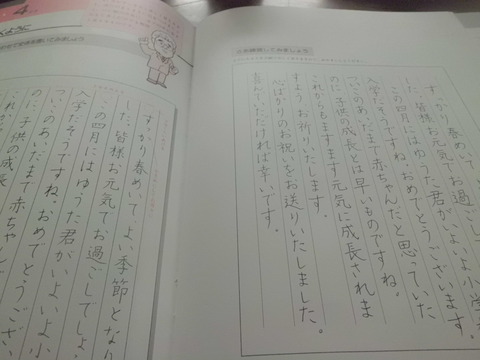 すっかり春めいて、
した。皆様お元気でお過ごし
この四月にはゆうた君がいよいよ小学
入学だそうですね。おめでとうございます。
ついこのあいだまで赤ちゃんだと思っていた
のに、子供の成長とは早いものですね。
これからもますます元気に成長されま
すよう お祈りいたします。
心ばかりのお祝いをお送りいたしました。
喜んでいただければ幸いです。
書いてみましょう
すっかり春めいて、よい季節となり
した。皆様お元気でお過ごしでしょ
この四月にはゆうた君がいよいよ小
入学だそうですね。おめでとうござ
ついこのあいだまで赤ちゃん
のに、子供の成長